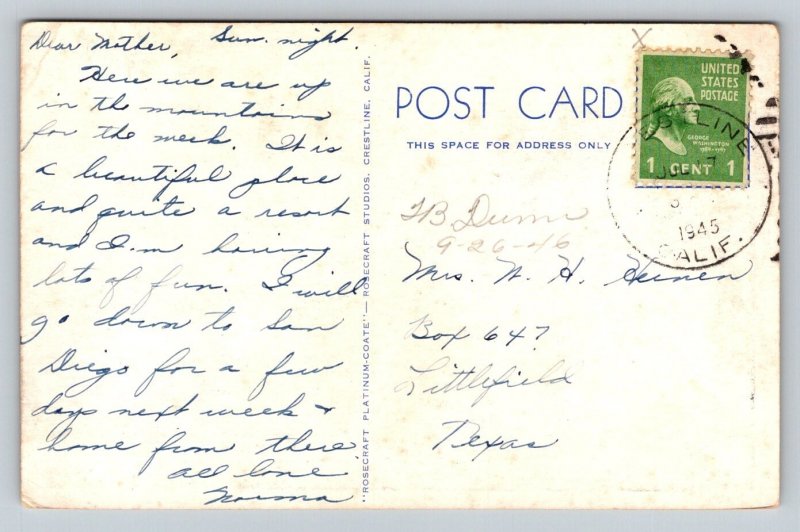 Dear Mother, Sun. night.
Here we are up
in the mountains
for the week. It is
a beautiful place
and quite a resort
and I'm having
lots of fun. I will
go down to San
Diego for a few
days next week &
home from there.
all love
Norma
"ROSECRAFT PLATINUM-COATE"—ROSECRAFT STUDIOS, CRESTLINE, CALIF.
POST CARD
THIS SPACE FOR ADDRESS ONLY
X
UNITED
STATES
POSTAGE
GEORGE
WASHINGTON
1 CENT 1
1945
CALIF.
Dunn
9-26-46
Mrs. W. H. Heinen
Box 647
Littlefield
Texas